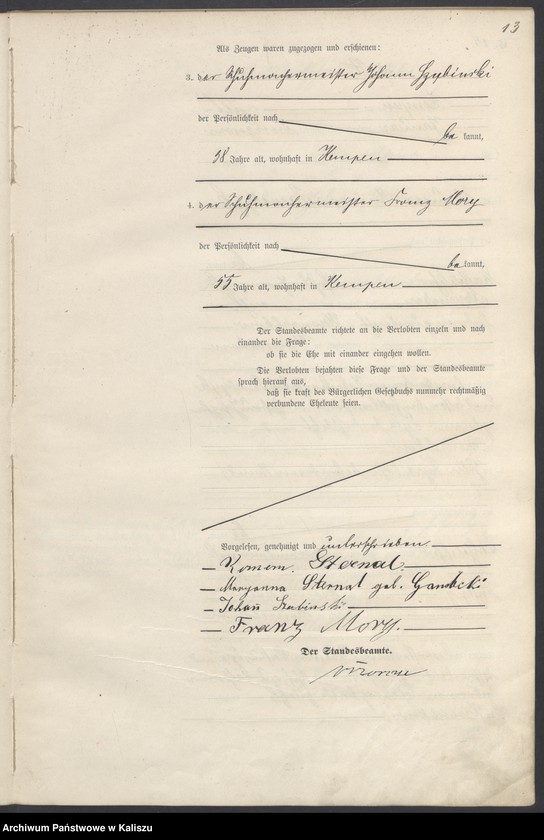 13
Als Zeugen waren zugezogen und erschienen:
3. der Schuhmachermeister Johann
der Persönlichkeit nach
be kannt,
58 Jahre alt, wohnhaft in Kempen
4. der Schuhmachermeister Franz Mory
der Persönlichkeit nach
be kannt,
55 Jahre alt, wohnhaft in Kempen
Der Standesbeamte richtete an die Verlobten einzeln und nach
einander die Frage:
ob sie die Ehe mit einander eingehen wollen.
Die Verlobten bejahten diese Frage und der Standesbeamte
sprach hierauf aus,
daß sie kraft des Bürgerlichen Gesetzbuchs nunmehr rechtmäßig
verbundene Eheleute seien.
Vorgelesen, genehmigt und unterschrieben
Roman Sternal.
Maryanna Sternal geb.
Johan
Franz Mory.
Der Standesbeamte.
Archiwum Państwowe w Kaliszu